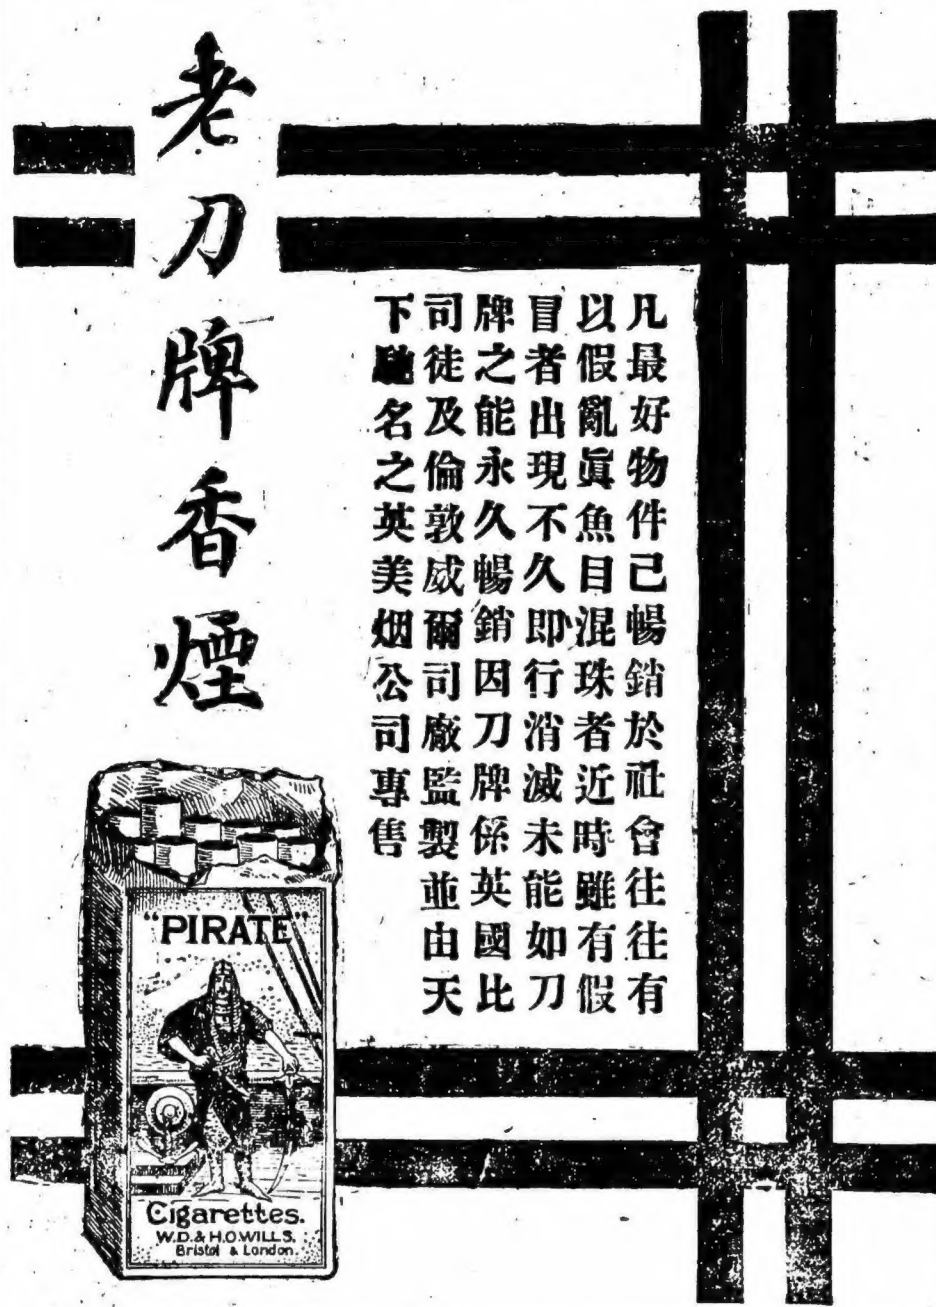 老刀牌香煙
凡最好物件己暢銷於社會往往有
以假亂眞魚目混珠者近時雖有假
冒者出現不久即行消滅未能如刀
牌之能永久暢銷因刀牌係英國比
司徒及倫敦威爾司廠監製並由天
下馳名之英美烟公司專售
"PIRATE"
Cigarettes.
W.D.& H.O.WILLS.
Bristol & London.